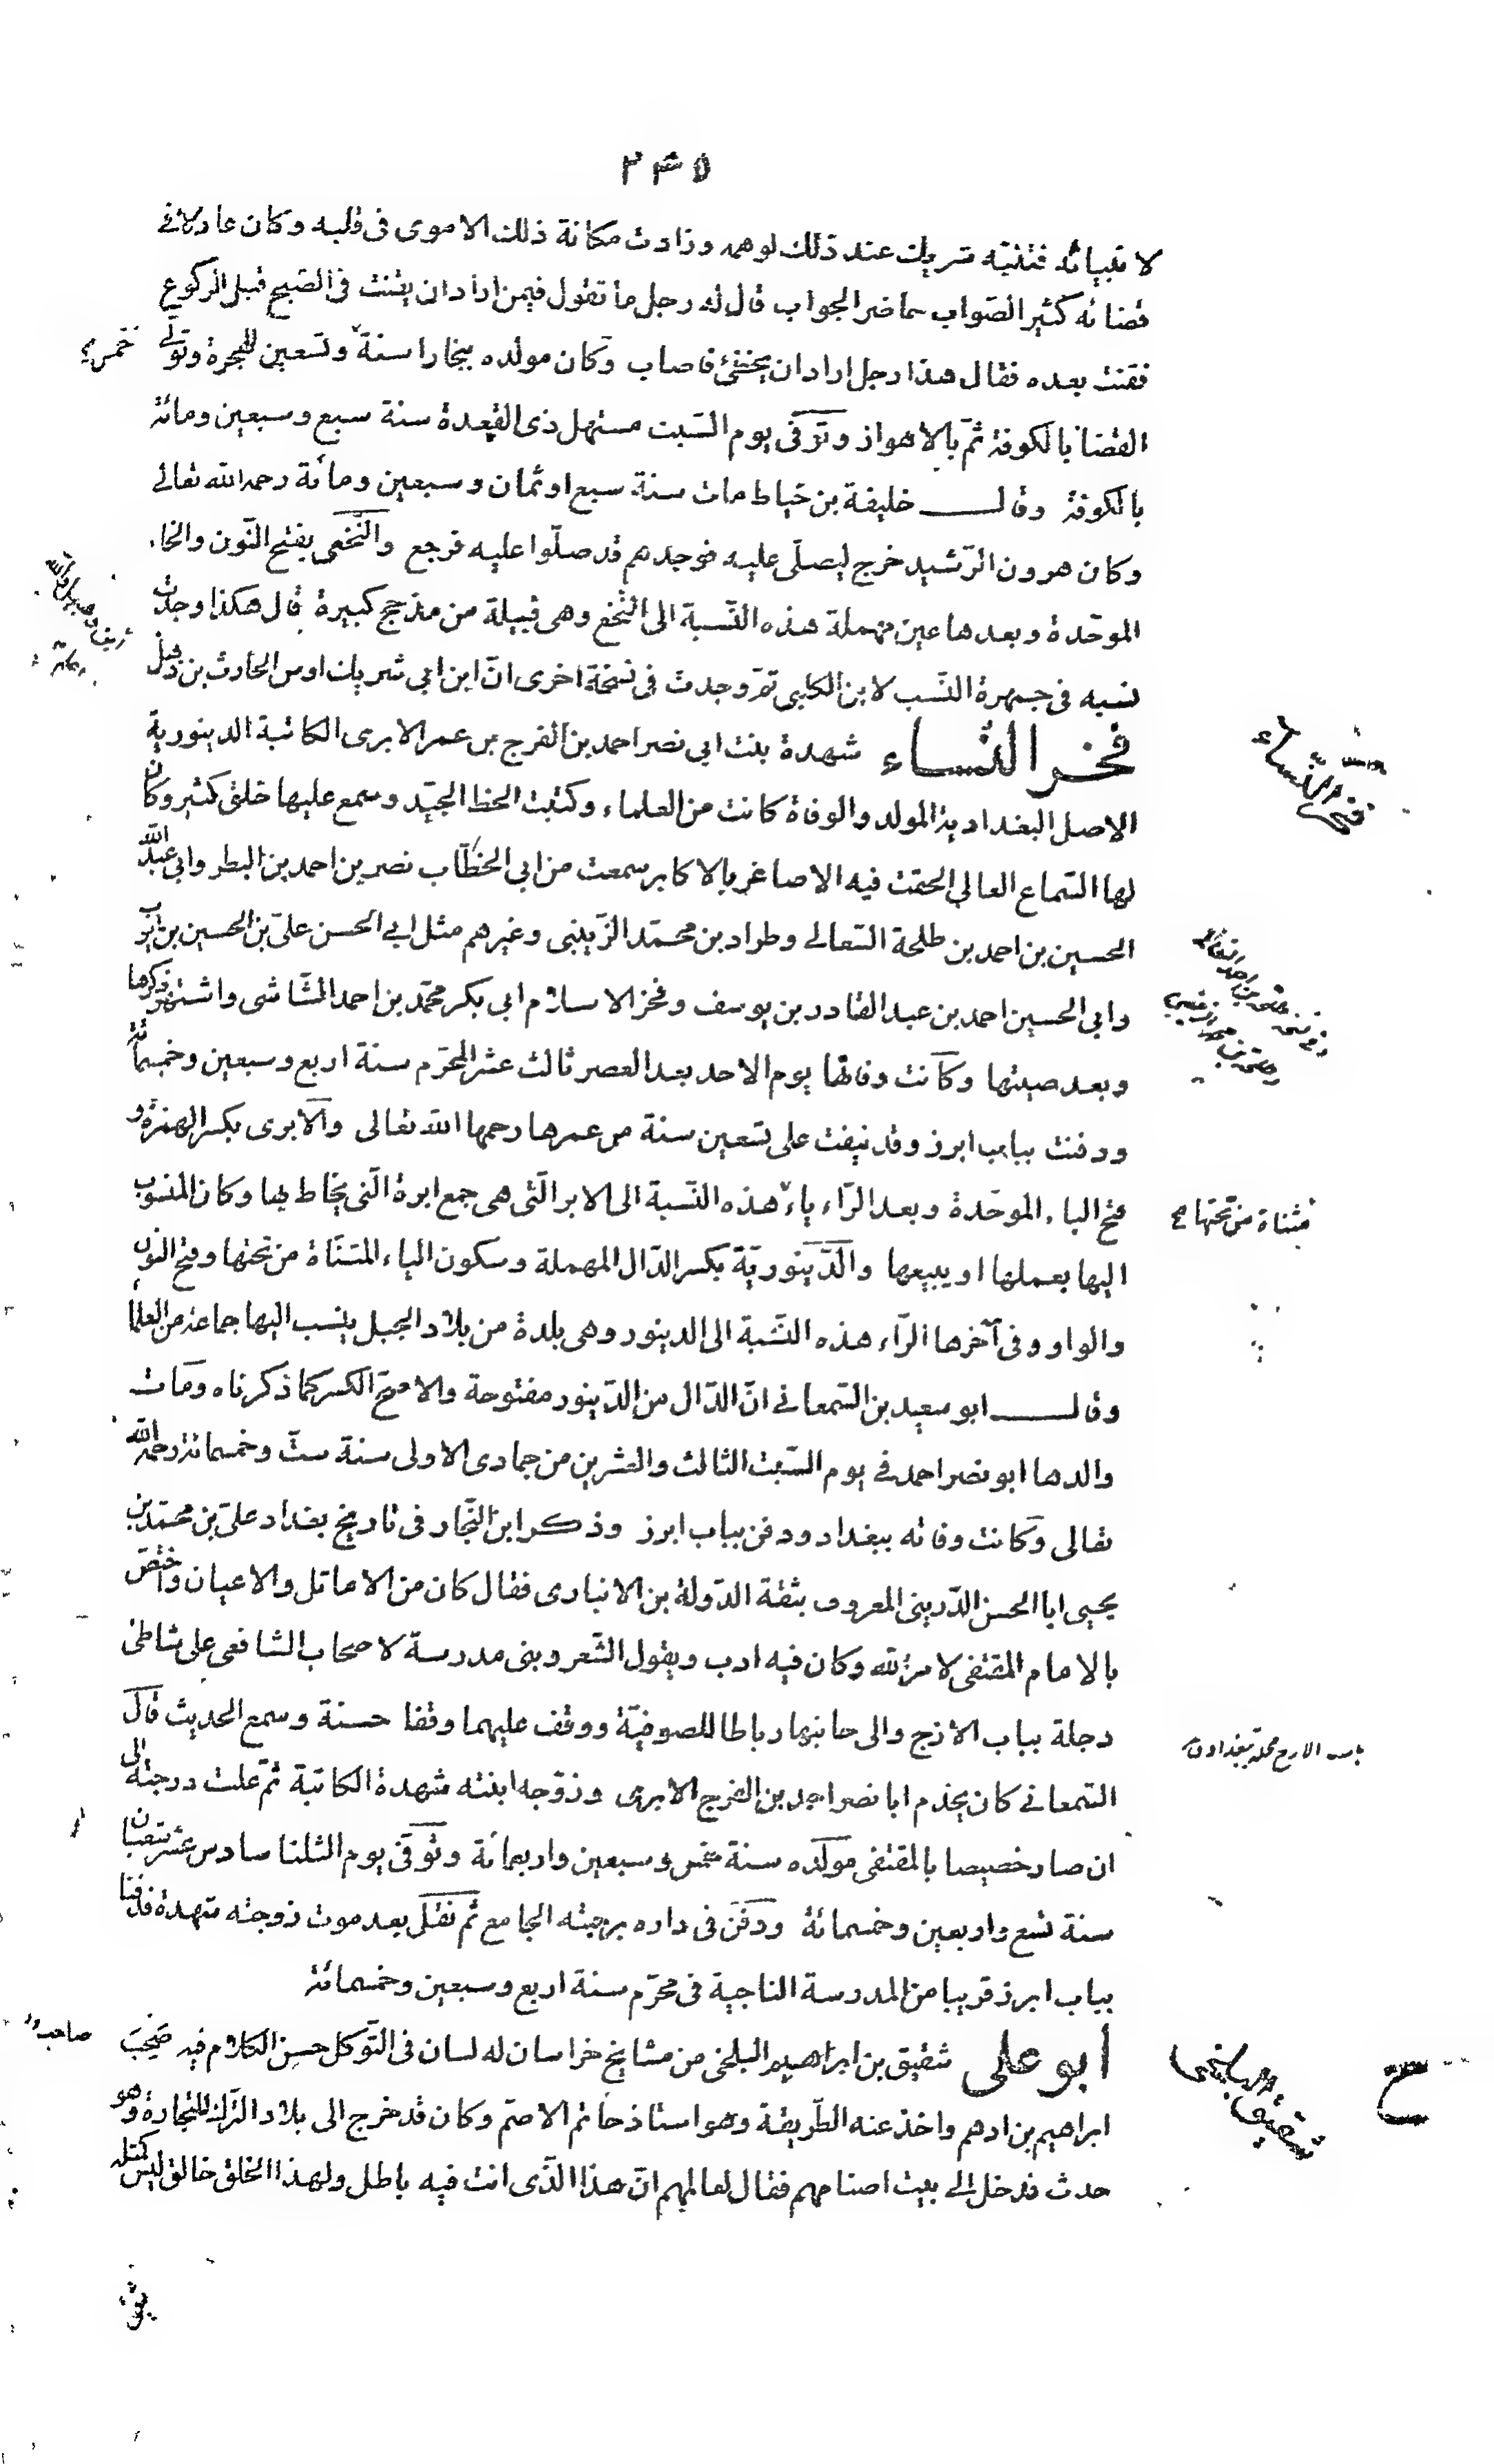 ٢٤٥
لا نبيائه فتنبّه شريك عند ذلك لوهمه وزادت مكانة ذلك الاموى فى قلبه وكان عادلا فى
قضائه كثير الصّواب حاضر الجواب قال له رجل ما تقول فيمن اراد ان يقنت فى الصّبح قبل الركوع
فقنت بعده فقال هذا رجل اراد ان يخطئ فاصاب وكان مولده ببخارا سنة وتسعين للهجرة وتولّى
خمس
القضا بالكوفة ثمّ بالاهواز وتوفى يوم السّبت مستهل ذى القعدة سنة سبع وسبعين ومائة
بالكوفة وقال خليفة بن خياط مات سنة سبع او ثمان وسبعين ومائة رحمه الله تعالى
وكان هرون الرّشيد خرج ليصلّى عليه فوجدهم قد صلّوا عليه فرجع والنّخعى بفتح النّون والخاء
الموحّدة وبعدها عين مهملة هذه النّسبة الى النّخع وهى قبيلة من مذحج كبيرة قال هكذا وجدت
نسبه فى جمهرة النّسب لابن الكلبى ثمّ وجدت فى نسخة اخرى انّ ابن ابى شريك اوس الحارث بن ذهل
فخر النّساء شهدة بنت ابى نصر احمد بن الفرج بن عمر الابرى الكاتبة الدينورية
فخر النّساء
الاصل البغدادية المولد والوفاة كانت من العلماء وكتبت الخط الجيّد وسمع عليها خلق كثير وكان
لها السّماع العالى الحقت فيه الاصاغر بالاكابر سمعت من ابى الخطّاب نصر بن احمد بن البطر وابى عبد الله
الحسين بن احمد بن طلحة النّعالى وطراد بن محمّد الزّينبى وغيرهم مثل ابى الحسن علىّ بن الحسين بن ايّوب
وابى الحسين احمد بن عبد القادر بن يوسف وفخر الاسلام ابى بكر محمّد بن احمد الشّاشى واشتهر ذكرها
وبعد صيتها وكانت وفاتها يوم الاحد بعد العصر ثالث عشر المحرّم سنة اربع وسبعين وخمسمائة
ودفنت بباب ابرز وقد نيفت على تسعين سنة من عمرها رحمها الله تعالى والابرى بكسر الهمزة و
فتح الباء الموحّدة وبعد الرّاء ياء هذه النّسبة الى الابر الّتى هى جمع ابرة الّتى يخاط بها وكان المنسوب
مثناة من تحتها صح
اليها بعملها او يبيعها والدّينوريّة بكسر الدّال المهملة وسكون الياء المثنّاة من تحتها وفتح النون
والواو وفى آخرها الرّاء هذه النّسبة الى الدينور وهى بلدة من بلاد الجبل ينسب اليها جماعة من العلما
وقال ابو سعيد بن السّمعانى انّ الدّال من الدّينور مفتوحة والاصحّ الكسر كما ذكرناه ومات
والدها ابو نصر احمد فى يوم السّبت الثالث والعشرين من جمادى الاولى سنة ستّ وخمسمائة رحمه الله
تعالى وكانت وفاته ببغداد ودفن بباب ابرز وذكر ابن النّجّار فى تاريخ بغداد علىّ بن محمّد بن
يحيى ابا الحسن الدّرينى المعروف بثقة الدّولة بن الانبارى فقال كان من الاماثل والاعيان واختصّ
بالامام المقتفى لامر الله وكان فيه ادب ويقول الشّعر وبنى مدرسة لاصحاب الشافعى على شاطئ
دجلة بباب الازج والى جانبها رباطا للصوفيّة ووقف عليهما وقفا حسنة وسمع الحديث قال
باب الازج محلة ببغداد
السّمعانى كان يخدم ابا نصر احمد بن الفرج الابرى وزوّجه ابنته شهدة الكاتبة ثمّ علت درجته الى
ان صار خصيصا بالمقتفى مولده سنة خمس وسبعين واربعمائة وتوفّى يوم الثلثا سادس عشر شعبان
سنة تسع واربعين وخمسمائة ودفن فى داره برحبة الجامع ثمّ نقل بعد موت زوجته شهدة فدفنا
بباب ابرز قريبا من المدرسة التاجية فى محرّم سنة اربع وسبعين وخمسمائة
أبو على شقيق بن ابراهيم البلخى من مشايخ خراسان له لسان فى التّوكل حسن الكلام فيه صحب
شقيق البلخى
صاحب
ابراهيم بن ادهم واخذ عنه الطّريقة وهو استاذ حاتم الاصمّ وكان قد خرج الى بلاد التّرك للتّجارة وهو
حدث فدخل الى بيت اصنامهم فقال لعالمهم انّ هذا الّذى انت فيه باطل ولهذا الخلق خالق ليس كمثله